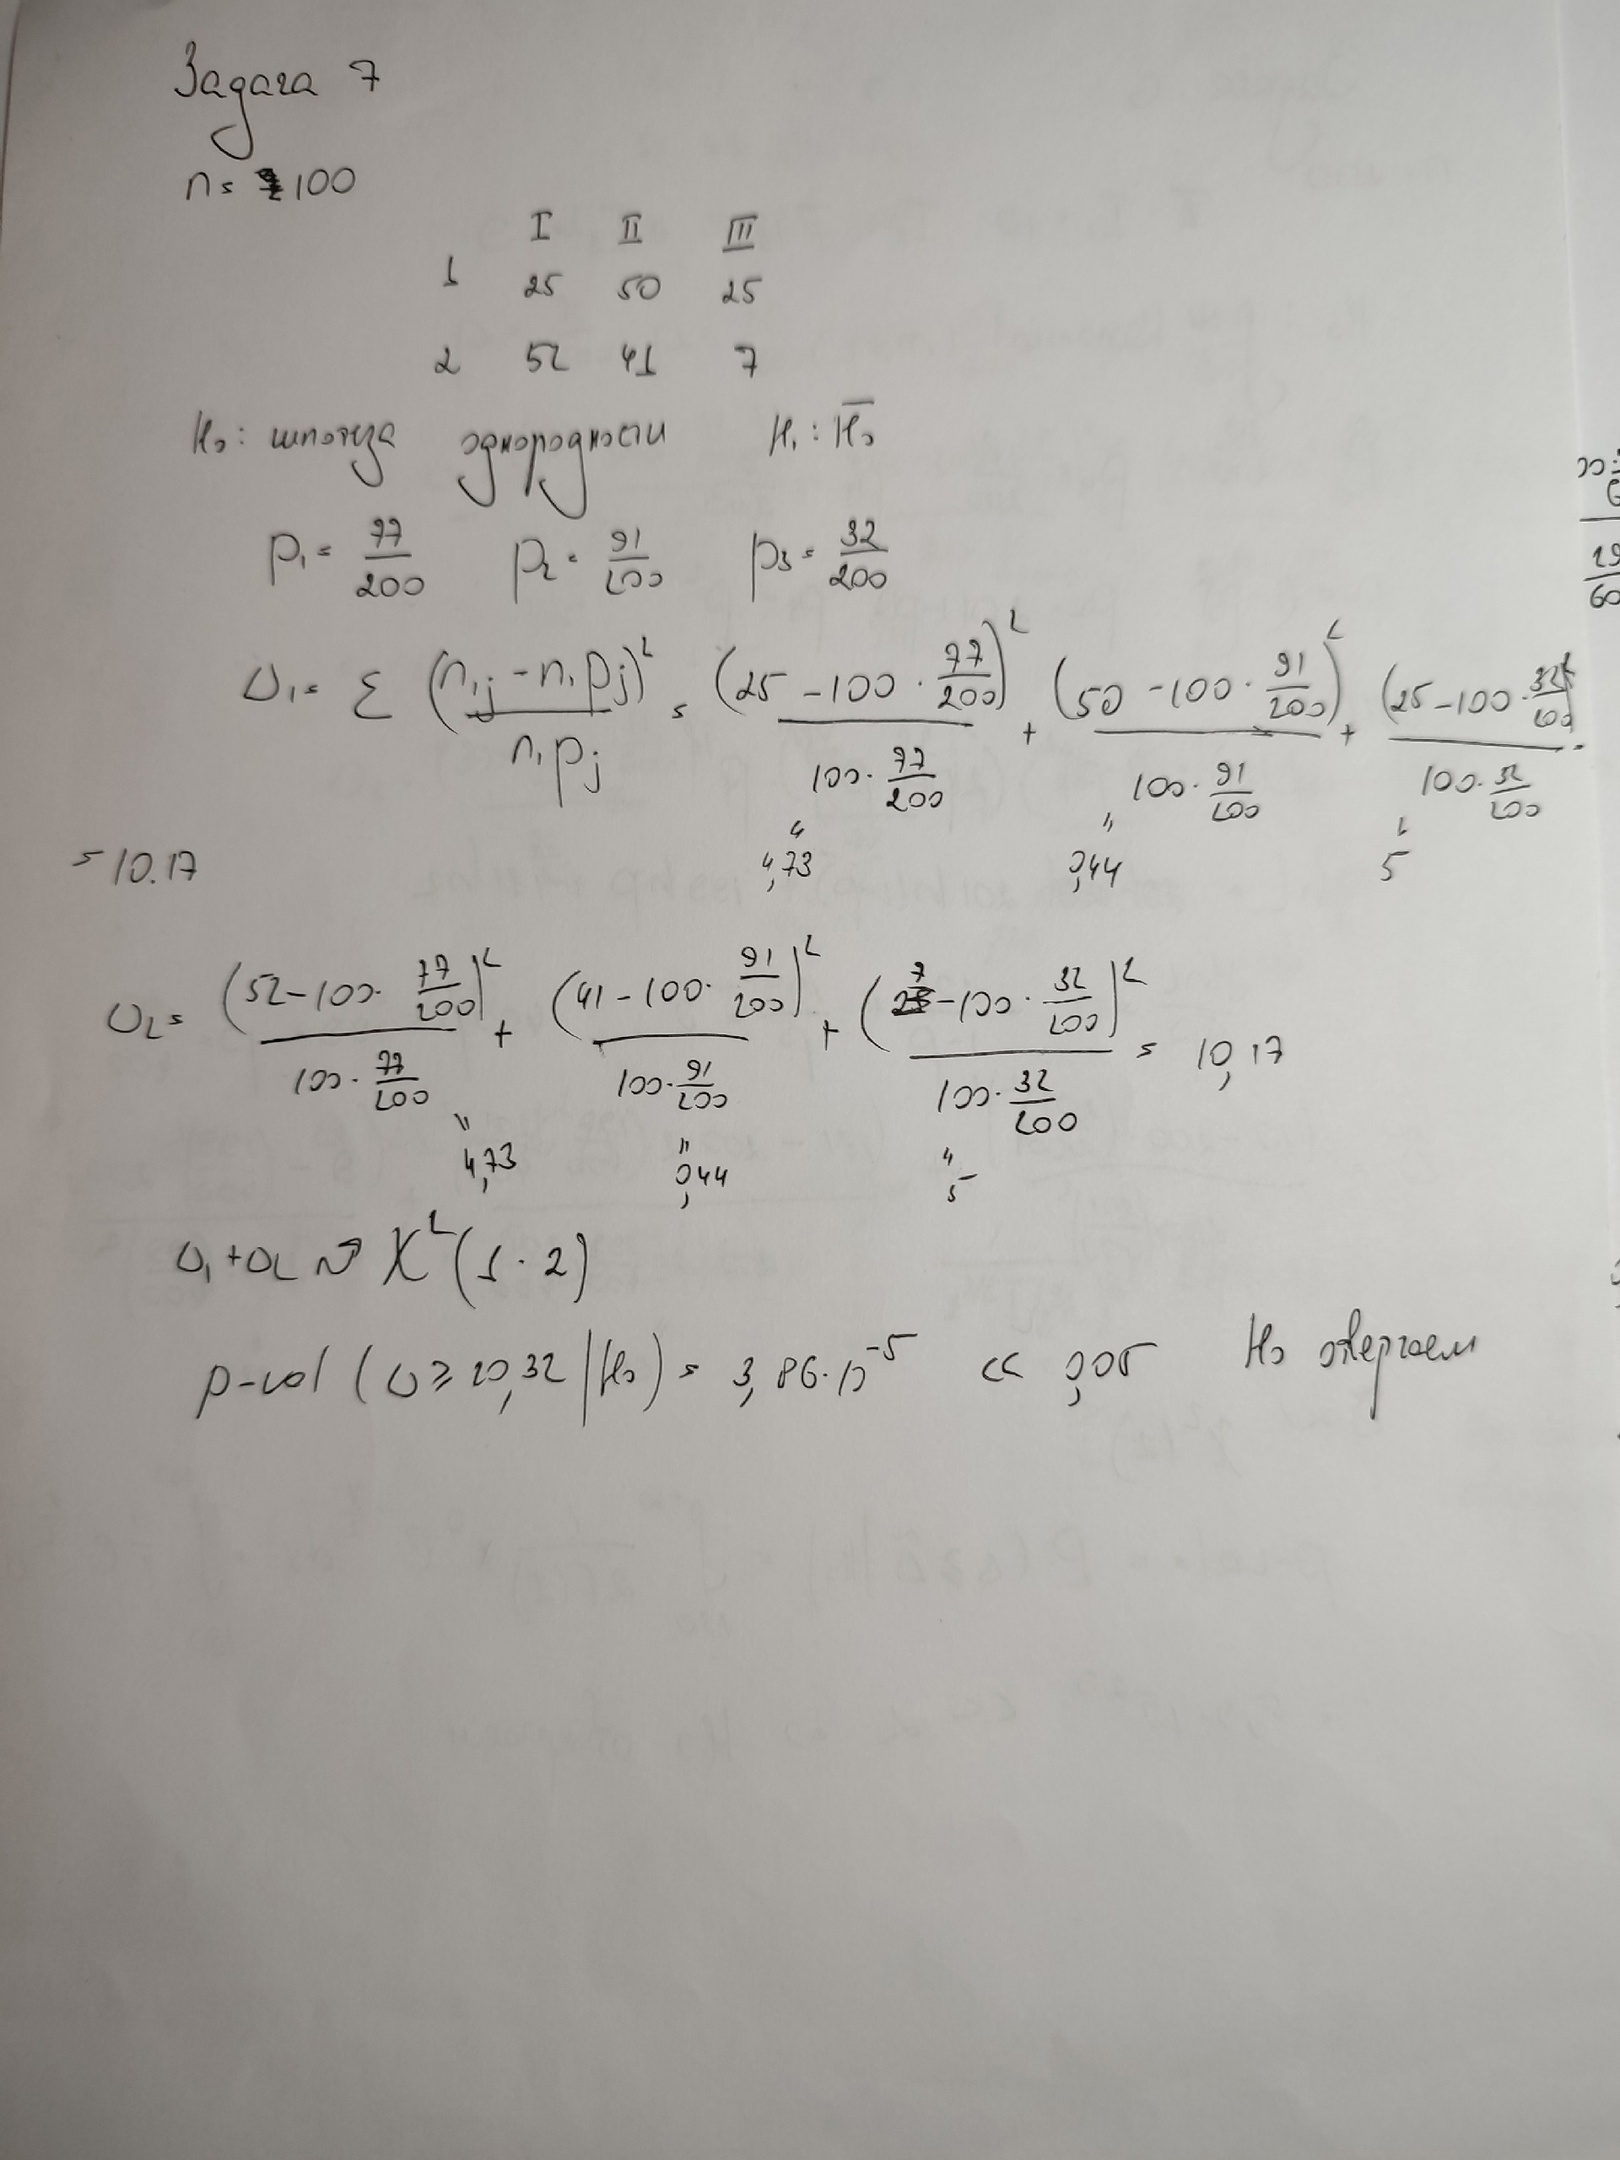 Задача 7
n = 100
I II III
1 25 50 25
2 52 41 7
H₀: гипотеза однородности H₁: H̅₀
p₁ = 77/200 p₂ = 91/200 p₃ = 32/200
Δ₁ = Σ (n₁ⱼ - n₁pⱼ)²/n₁pⱼ = (25 - 100 · 77/200)²/(100 · 77/200) + (50 - 100 · 91/200)²/(100 · 91/200) + (25 - 100 · 32/200)²/(100 · 32/200) =
" 4,73 " 0,44 " 5
= 10.17
Δ₂ = (52 - 100 · 77/200)²/(100 · 77/200) + (41 - 100 · 91/200)²/(100 · 91/200) + (7 - 100 · 32/200)²/(100 · 32/200) = 10,17
" 4,73 " 0,44 " 5
Δ₁ + Δ₂ ~> χ²(1 · 2)
p-val (Δ ≥ 20,32 | H₀) = 3,86 · 10⁻⁵ << 0,05 H₀ отвергаем